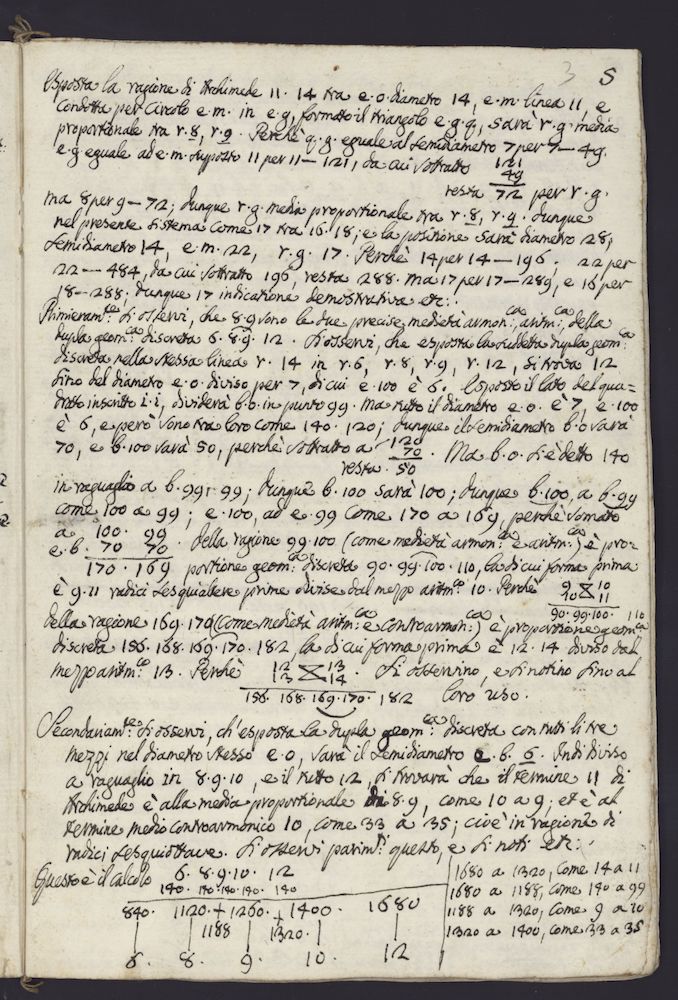 3 5
Esposta la ragione di Archimede 11. 14 tra e.o. diametro 14, e.m. linea 11, e
condotta per circolo e.m. in e.g, formato il triangolo e.g.q, sarà r.g. media
proportionale tra r.8, r.9. Perchè q.g. eguale al semidiametro 7 per 7 — 49.
e.g eguale ad e.m. supposto 11 per 11 — 121, da cui sottratto 121
49
resta 72 per r.g.
ma 8 per 9 — 72; dunque r.g. media proportionale tra r.8, r.9. Dunque
nel presente sistema come 17 tra 16. 18; e la positione sarà diametro 28;
semidiametro 14, e.m. 22, r.g. 17. Perchè 14 per 14 — 196; 22 per
22 — 484, da cui sottratto 196, resta 288. Ma 17 per 17 — 289, e 16 per
18 — 288; dunque 17 indicatione demostrativa etc:.
Primieramte si osservi, che 8.9 sono le due precise medietà armon:ca, aritm:ca, della
dupla geom:ca discreta 6. 8.9. 12. Si osservi, che esposta la suddetta dupla geom:ca
discreta nella stessa linea r. 14 in r.6, r.8, r.9, r.12, si trova 12
sino del diametro e.o. diviso per 7, di cui e.100 è 6. Esposto il lato del qua-
drato inscritto i.i, dividerà b.o. in punto 99. Ma tutto il diametro e.o. è 7, e.100
è 6, e però sono tra loro come 140. 120; dunque il semidiametro b.o sarà
70, e b.100 sarà 50, perchè sottratto a 120
70
resta 50 . Ma b.o. si è detto 140
in raguaglio a b.99: 99; dunque b.100 sarà 100; dunque b.100, a b.99
come 100 a 99; e.100, ad e.99 come 170 a 169, perchè somato
a 100. 99
e.b. 70 70
170. 169 . Della ragione 99.100 (come medietà armon:ca e aritm:ca) è pro:
portione geom:ca discreta 90. 99.100. 110, la di cui forma prima
è 9.11 radici sesquialtere prime divise dal mezzo aritm:co 10. Perchè 9 10
10 11
90. 99.100. 110
Della ragione 169.170 (come medietà aritm:ca e controarmon:ca) è proportione geom:ca
discreta 156. 168. 169. 170. 182, la di cui forma prima è 12. 14 diviso dal
mezzo aritm:co 13. Perchè 12 13
13 14 . Si osservino, e si notino sino al
156. 168. 169.170. 182 loro uso.
Secondariamte si osservi, ch'esposta la dupla geom:ca discreta con tutti li tre
mezzi nel diametro stesso e.o, sarà il semidiametro e.b. 6. Indi diviso
a raguaglio in 8.9.10, e il tutto 12, si trovarà che il termine 11 di
Archimede è alla media proportionale di 8.9, come 10 a 9; et è al
termine medio controarmonico 10, come 33 a 35; cioè in ragione di
radici sesquiottave. Si osservi parimti questo, e si noti etc:.
Questo è il calcolo 6. 8.9.10. 12
140. 140. 140. 140. 140
840. 1120. + 1260. + 1400. 1680
1188 1320.
6. 8. 9. 10. 12
1680 a 1320, come 14 a 11
1680 a 1188, come 140 a 99
1188 a 1320, come 9 a 10
1320 a 1400, come 33 a 35